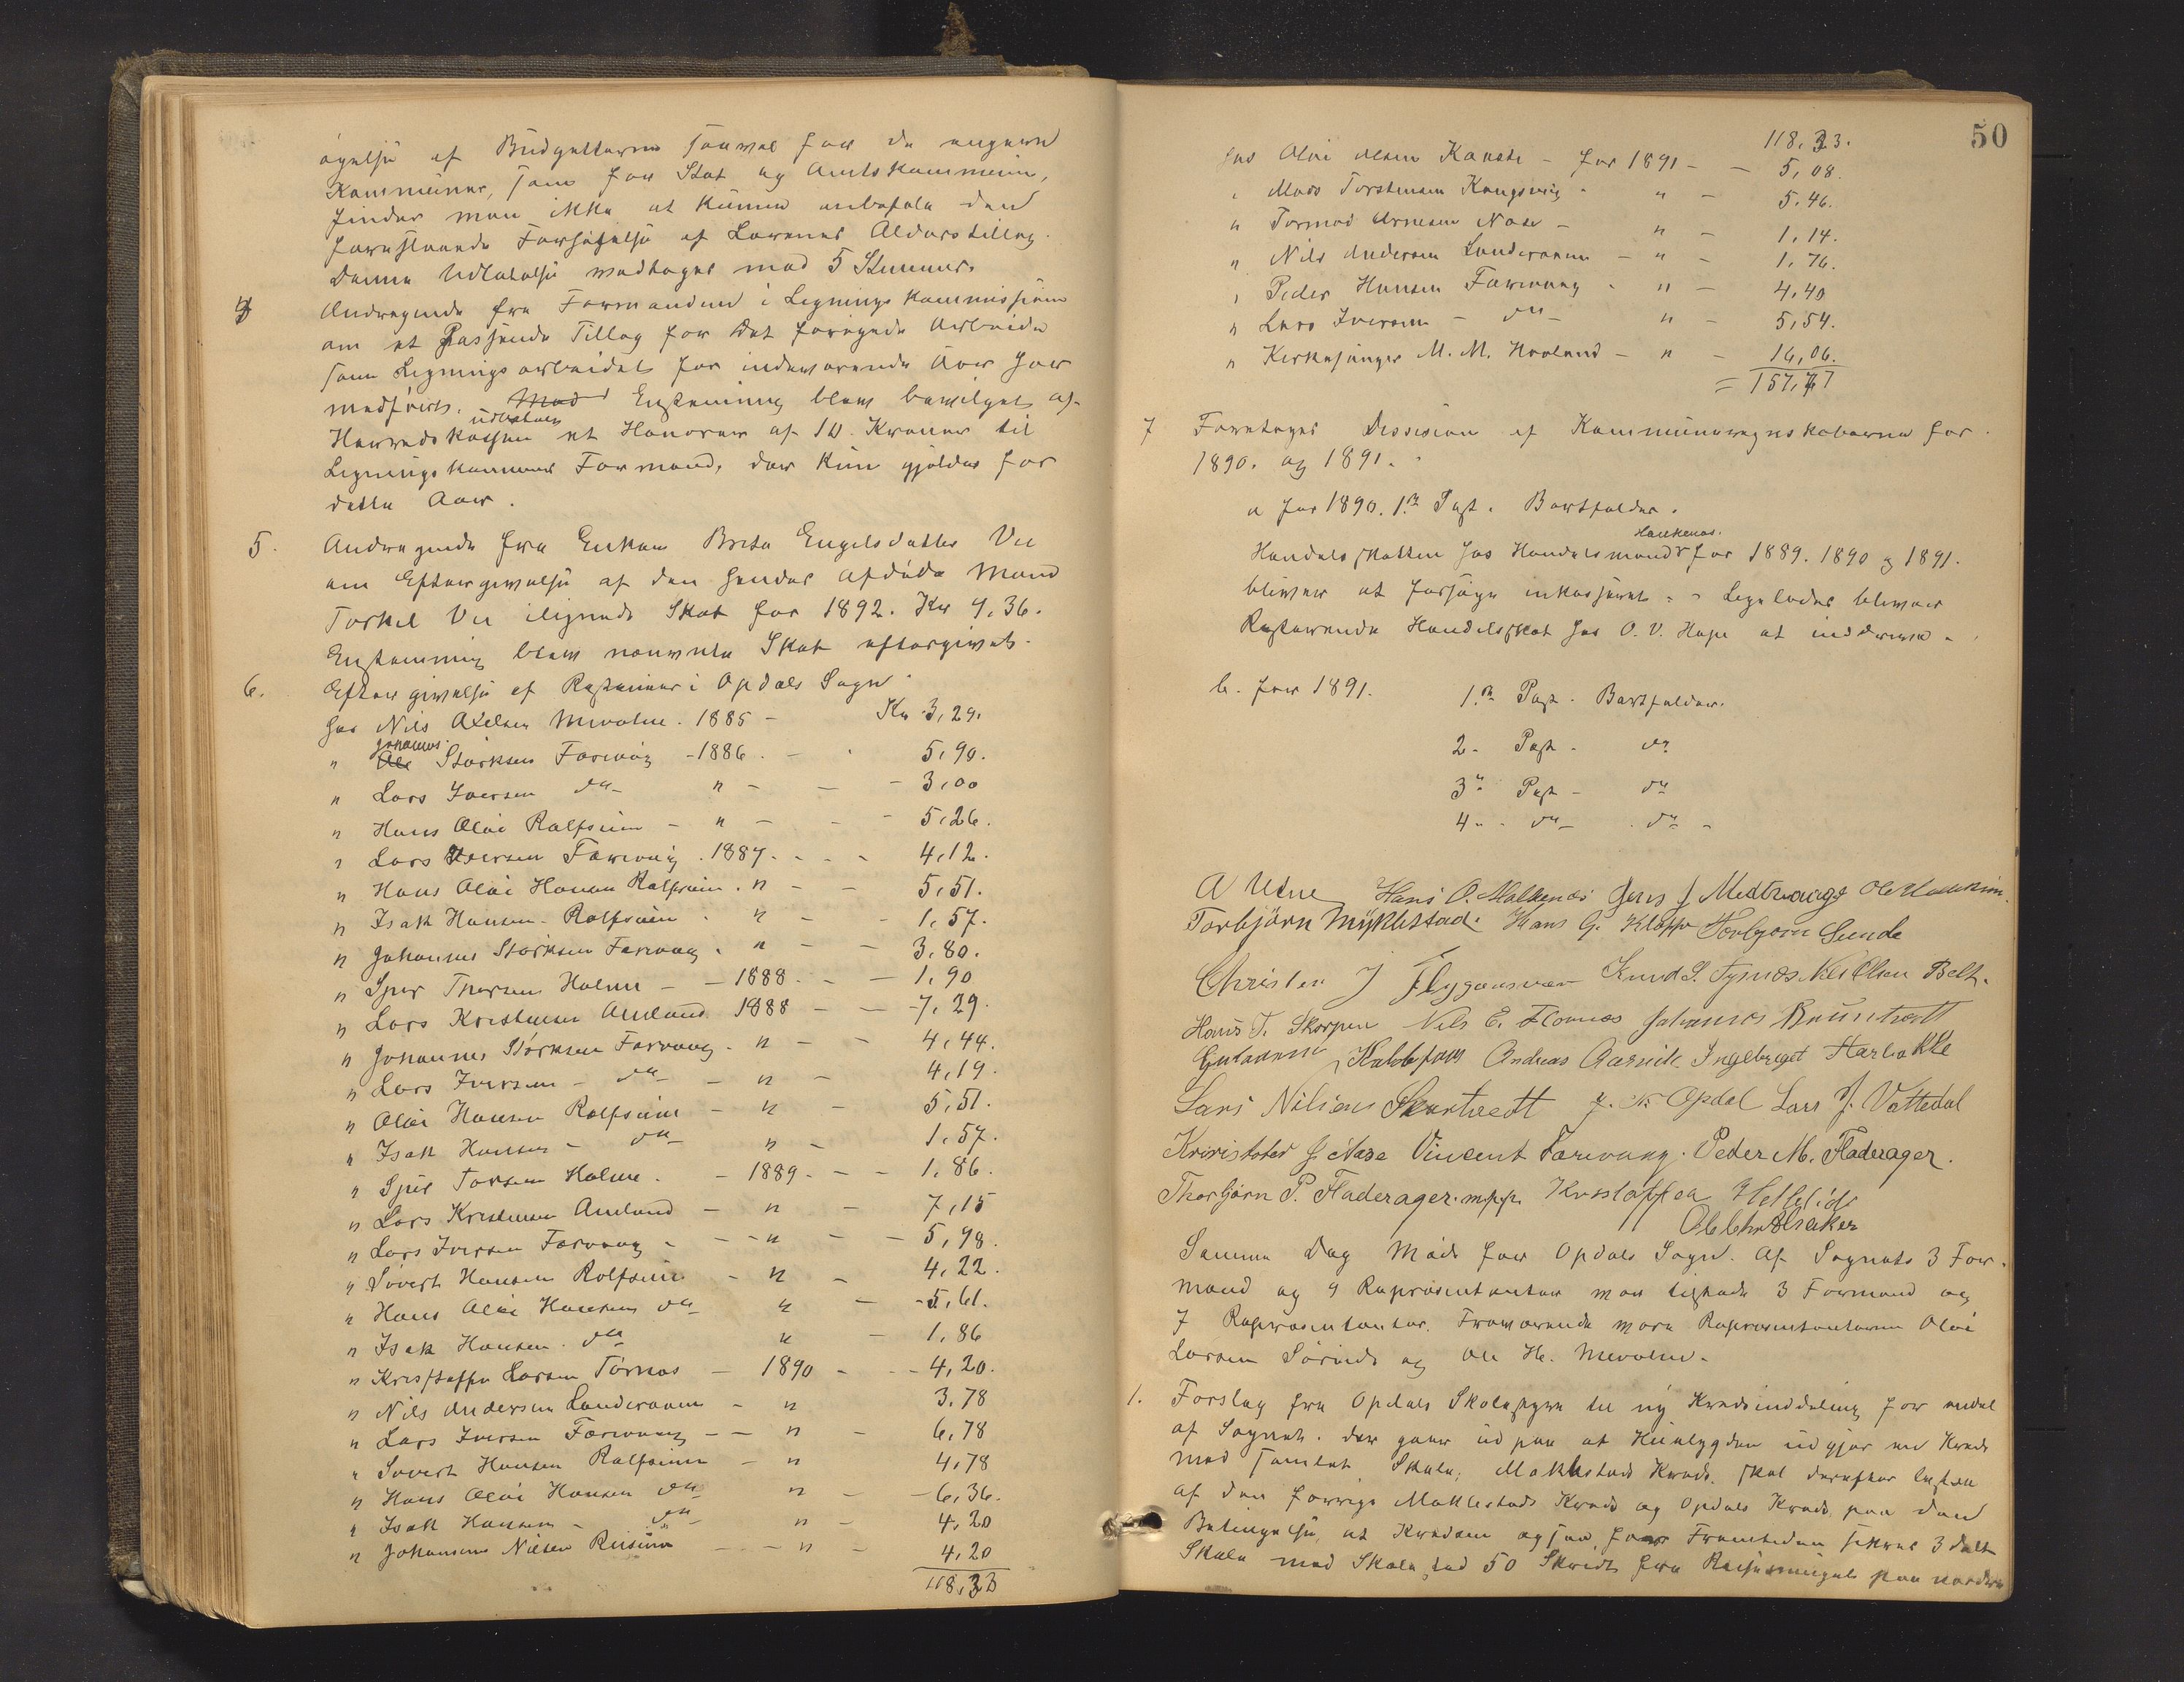 øgelse af Budgetterne saavel for de engere
Kommuner, som for Stat og Amtskommune,
finder man ikke at kunne anbefale den
foreslaaede Forhøielse af Lærernes Alderstillæg.
Denne Udtalelse vedtages med 5 Stemmer.
4 Andragende fra Formanden i Ligningskommissionen
om et passende Tillæg for det forøgede Arbeide
som Ligningsarbeidet for indeværende Aar har
medført. Enstemmig blev bevilget af
Herredskassen udbetales et Honorar af 10 Kroner til
Ligningskommens Formand, der kun gjælder for
dette Aar.
5. Andragende fra Enken Brita Engelsdatter Vee
om Eftergivelse af den hendes afdøde Mand
Torkel Vee ilignede Skat for 1892. Kr 4,36.
Enstemmig blev nævnte Skat eftergivet.
6. Eftergivelse af Restancer i Opdals Sogn
hos Nils Axelsen Mevatne. 1885 - Kr. 3,29.
" Johannes Størksen Færevaag - 1886 - 5,90.
" Lars Iversen do " - - 3,00
" Hans Olai Rolfsnes - " - - 5,26.
" Lars Iversen Færevaag . 1887. - - 4,12.
" Hans Olai Hansen Rolfsnes . " - - 5,51.
" Isak Hansen Rolfsnes . " - - 1,57.
" Johannes Størksen Færevaag . " - - 3,80.
" Sjur Thorsen Holme - - 1888. - - 1,90
" Lars Kristensen Amland 1888 - - 7,29.
" Johannes Størksen Færevaag . " - - 4,44.
" Lars Iversen - do - " - 4,19.
" Olai Hansen Rolfsnes - " - 5,51.
" Isak Hansen - do " - 1,57.
" Sjur Torsen Holme . - 1889. - - 1,86.
" Lars Kristensen Amland - " - 7,15
" Lars Iversen Færevaag - - " - - 5,98.
" Sivert Hansen Rolfsnes - " - 4,22.
" Hans Olai Hansen do " - - 5,61.
" Isak Hansen . do " - 1,86
" Kristoffer Larsen Tørnæs - 1890 - - 4,20.
" Nils Andersen Landeraaen - " 3,78
" Lars Iversen Færevaag - - " - 6,78
" Sivert Hansen Rolfsnes - " 4,78
" Hans Olai Hansen do " - - 6,36.
" Isak Hansen - do " - 4,20
" Johannes Nilsen - - " - 4,20
118,33
50
118,33.
hos Olai Olsen - for 1891 - - 5,08.
" Mads Torstensen Kongsvig - " - 5,46.
" Tormod Arnesen Nase - " - 1,14.
" Nils Andersen Landeraaen - " - 1,76.
" Peder Hansen Færevaag . " - 4,40
" Lars Iversen - do - " - 5,54.
" Kirkesanger M. M. Hovland - " - 16,06.
= 157,77
7 Foretages Dessision af Kommuneregnskaberne for
1890. og 1891.
a for 1890. 1ste Post. Bortfalder.
Handelsskatten hos Handelsmand Haukenæs. for 1889. 1890 og 1891.
bliver at forsøge inkasseret. - Ligeledes bliver
Resterende Handelsskat hos O. V. Hope at inddrive.
b. for 1891. 1ste Post. Bortfalder.
2 - Post - do
3 - Post - do
4 - - do - do -
A Utne Hans O. Malkenes Jens J Medhaug Ole
Torbjørn Myklestad. Hans G. Kleppe Torbjørn Sunde
Christen J Flygansvær Knud S. Tysnes Nils Olsen Belt.
Hans T. Skorpen Nils E. Flornes Johannes Brüntveit
Andreas Aarvik Ingebrigt Harbakke
Lars Nilsen Skartvedt J. N. Opdal Lars J. Vattedal
Kristofer J. Nase Vincent Færevaag. Peder M. Fladerager.
Thorbjørn P. Fladerager. m.p.p. Kristoffer Hetleflot
Ole Chr Ølsaker
Samme Dag Møde for Opdals Sogn. Af Sognets 3 For-
mænd og 9 Repræsentanter mødte 3 Formænd og
7 Repræsentanter. Fraværende vare Repræsentanterne Olai
Larsen Søreide og Ole H. Mevatne.
1. Forslag fra Opdals Skolestyre til ny Kredsinddeling for endel
af Sognet. der gaar ud paa at Huebygden udgjør en Kreds
med samlet Skole; Maklestads Kreds skal derefter bestaa
af den forrige Maklestads Kreds og Opdals Kreds paa den
Betingelse, at Kredsen ogsaa for Fremtiden sikres 3 delt
Skole med Skolested 50 Skridt fra paa nordre